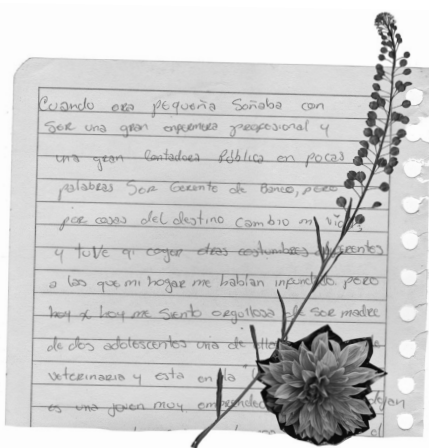 Cuando era pequeña Soñaba con
Ser una gran enfermera profesional y
una gran Contadora Pública en pocas
palabras Ser Gerente de Banco, pero
por cosas del destino Cambio mi vida
y tuve q coger otras costumbres diferentes
a las que mi hogar me habían infundido pero
hoy x hoy me Siento orgullosa de Ser madre
de dos adolescentes una de
veterinaria y esta en la
es una joven muy
el